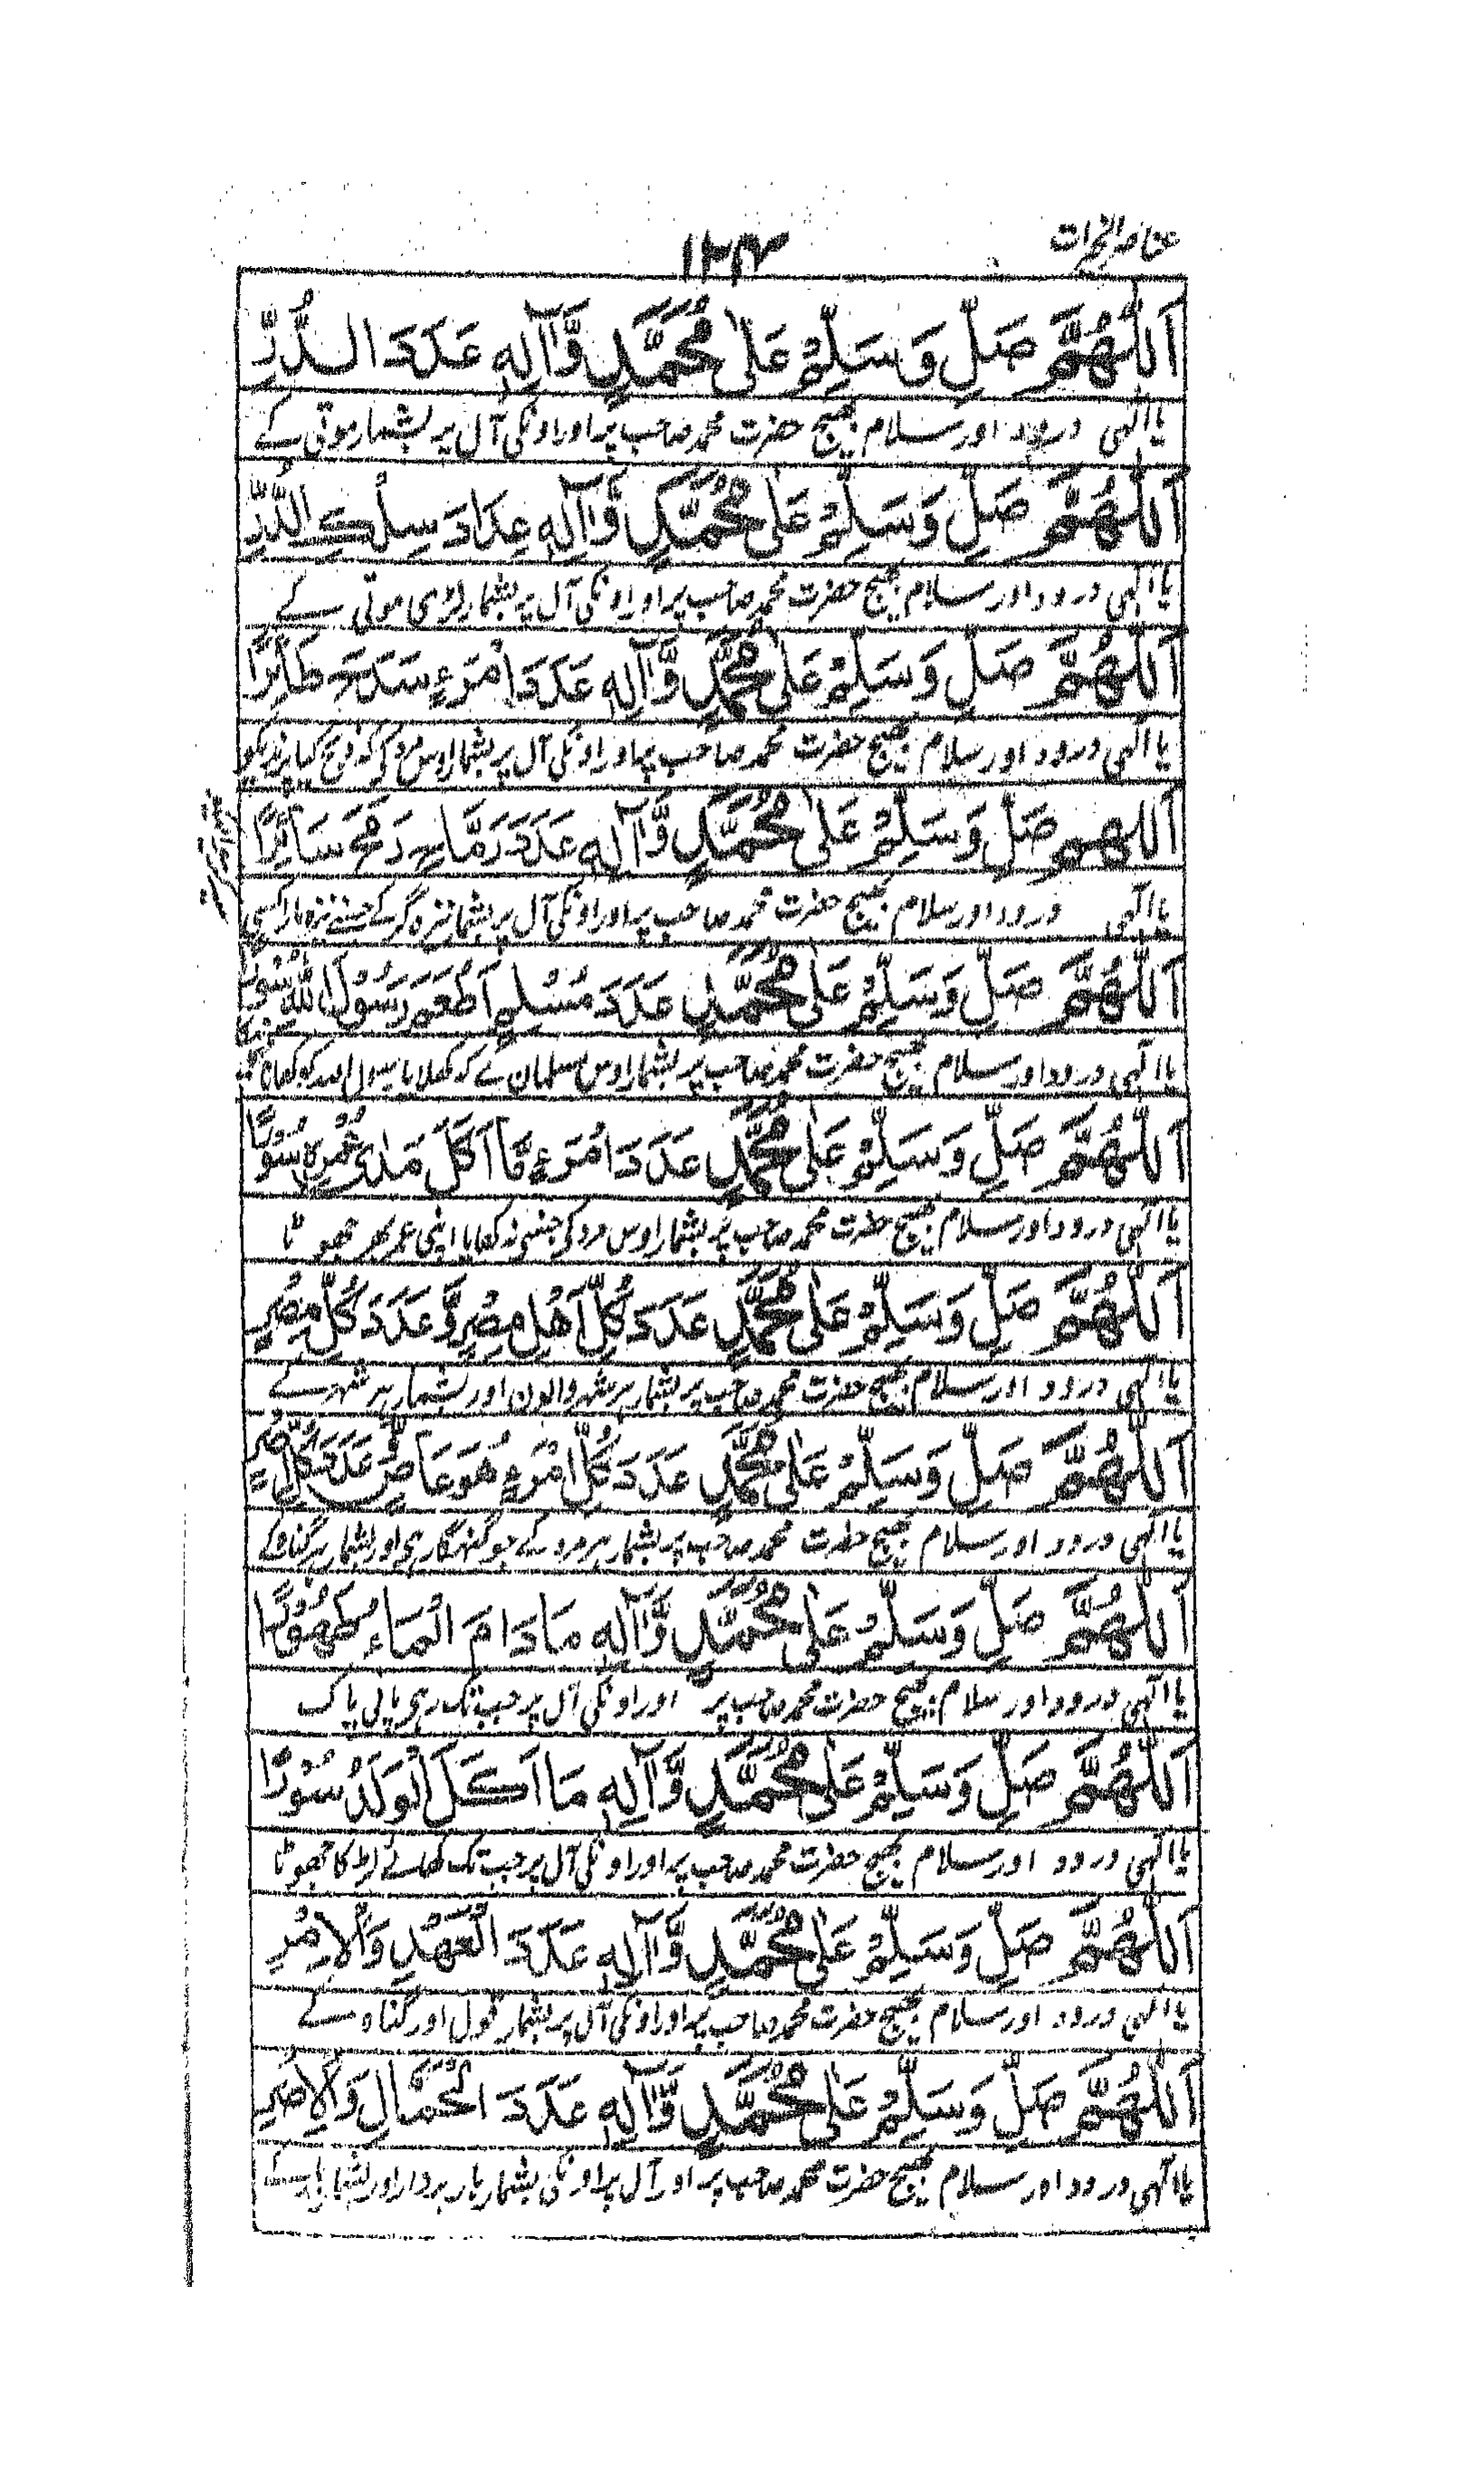 عناصر الخیرات
۱۲۴۷
اَللّٰهُمَّ صَلِّ وَسَلِّمْ عَلٰی مُحَمَّدٍ وَّاٰلِهٖ عَدَدَ الدُّرِّ
یا الٰہی درود اور سلام بھیج حضرت محمد صاحب پر اور اونکی آل پر بشمار موتی کے
اَللّٰهُمَّ صَلِّ وَسَلِّمْ عَلٰی مُحَمَّدٍ وَّاٰلِهٖ عِدَادَ سِلْكِ الدُّرِّ
یا الٰہی درود اور سلام بھیج حضرت محمد صاحب پر اور اونکی آل پر بشمار لڑی موتی کے
اَللّٰهُمَّ صَلِّ وَسَلِّمْ عَلٰی مُحَمَّدٍ وَّاٰلِهٖ عَدَدَ امْرَءٍ طَائِرًا
یا الٰہی درود اور سلام بھیج حضرت محمد صاحب پر اور اونکی آل پر بشمار اوس مرد کی کہ
اَللّٰهُمَّ صَلِّ وَسَلِّمْ عَلٰی مُحَمَّدٍ وَّاٰلِهٖ عَدَدَ رَمَّاحٍ رَمَحَ سَائِرًا
یا الٰہی درود اور سلام بھیج حضرت محمد صاحب پر اور اونکی آل پر بشمار نیزہ گر کے جسنے نیزہ مارا کسی
اَللّٰهُمَّ صَلِّ وَسَلِّمْ عَلٰی مُحَمَّدٍ عَدَدَ مُسْلِمٍ اَطْعَمَ رَسُوْلَ اللّٰهِ سُوْرًا
یا الٰہی درود اور سلام بھیج حضرت محمد صاحب پر بشمار اوس مسلمان کے کہ کھلایا رسول اللہ کو کھانا
اَللّٰهُمَّ صَلِّ وَسَلِّمْ عَلٰی مُحَمَّدٍ عَدَدَ امْرَءٍ مَّا اَكَلَ مَدٰی عُمْرِهٖ سُوْرًا
یا الٰہی درود اور سلام بھیج حضرت محمد صاحب پر بشمار اوس مرد کی جسنی نہ کھایا اپنی عمر بھر جھوٹا
اَللّٰهُمَّ صَلِّ وَسَلِّمْ عَلٰی مُحَمَّدٍ عَدَدَ كُلِّ اَهْلِ مِصْرٍ وَّعَدَدَ كُلِّ مِصْرٍ
یا الٰہی درود اور سلام بھیج حضرت محمد صاحب پر بشمار ہر شہر والون اور بشمار ہر شہر کے
اَللّٰهُمَّ صَلِّ وَسَلِّمْ عَلٰی مُحَمَّدٍ عَدَدَ كُلِّ امْرَءٍ هُوَ عَاصٍ عَدَدَ كُلِّ
یا الٰہی درود اور سلام بھیج حضرت محمد صاحب پر بشمار ہر مرد کے جو گنہگار ہی اور بشمار ہر گناہ کے
اَللّٰهُمَّ صَلِّ وَسَلِّمْ عَلٰی مُحَمَّدٍ وَّاٰلِهٖ مَا دَامَ الْمَاءُ طَهُوْرًا
یا الٰہی درود اور سلام بھیج حضرت محمد صاحب پر اور اونکی آل پر جب تک رہی پانی پاک
اَللّٰهُمَّ صَلِّ وَسَلِّمْ عَلٰی مُحَمَّدٍ وَّاٰلِهٖ مَا اَكَلَ الْوَلَدُ سُوْرًا
یا الٰہی درود اور سلام بھیج حضرت محمد صاحب پر اور اونکی آل پر جب تک کھائے لڑکا جھوٹا
اَللّٰهُمَّ صَلِّ وَسَلِّمْ عَلٰی مُحَمَّدٍ وَّاٰلِهٖ عَدَدَ الْعَهْدِ وَالْاِصْرِ
یا الٰہی درود اور سلام بھیج حضرت محمد صاحب پر اور اونکی آل پر بشمار قول اور گناہ کے
اَللّٰهُمَّ صَلِّ وَسَلِّمْ عَلٰی مُحَمَّدٍ وَّاٰلِهٖ عَدَدَ الْحَمَّالِ وَالْاِصْرِ
یا الٰہی درود اور سلام بھیج حضرت محمد صاحب پر اور آل پر اونکی بشمار بار بردار اور بشمار کے